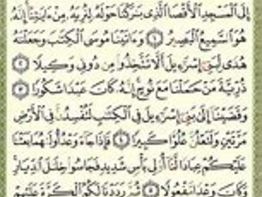 إِلَى ٱلْمَسْجِدِ ٱلْأَقْصَا ٱلَّذِى بَٰرَكْنَا حَوْلَهُۥ لِنُرِيَهُۥ مِنْ ءَايَٰتِنَآ إِنَّهُۥ
هُوَ ٱلسَّمِيعُ ٱلْبَصِيرُ ١ وَءَاتَيْنَا مُوسَى ٱلْكِتَٰبَ وَجَعَلْنَٰهُ
هُدًى لِّبَنِىٓ إِسْرَٰٓءِيلَ أَلَّا تَتَّخِذُوا۟ مِن دُونِى وَكِيلًا ٢
ذُرِّيَّةَ مَنْ حَمَلْنَا مَعَ نُوحٍ إِنَّهُۥ كَانَ عَبْدًا شَكُورًا ٣
وَقَضَيْنَآ إِلَىٰ بَنِىٓ إِسْرَٰٓءِيلَ فِى ٱلْكِتَٰبِ لَتُفْسِدُنَّ فِى ٱلْأَرْضِ
مَرَّتَيْنِ وَلَتَعْلُنَّ عُلُوًّا كَبِيرًا ٤ فَإِذَا جَآءَ وَعْدُ أُولَىٰهُمَا بَعَثْنَا
عَلَيْكُمْ عِبَادًا لَّنَآ أُو۟لِى بَأْسٍ شَدِيدٍ فَجَاسُوا۟ خِلَٰلَ ٱلدِّيَارِ
وَكَانَ وَعْدًا مَّفْعُولًا ٥ ثُمَّ رَدَدْنَا لَكُمُ ٱلْكَرَّةَ عَلَيْهِمْ